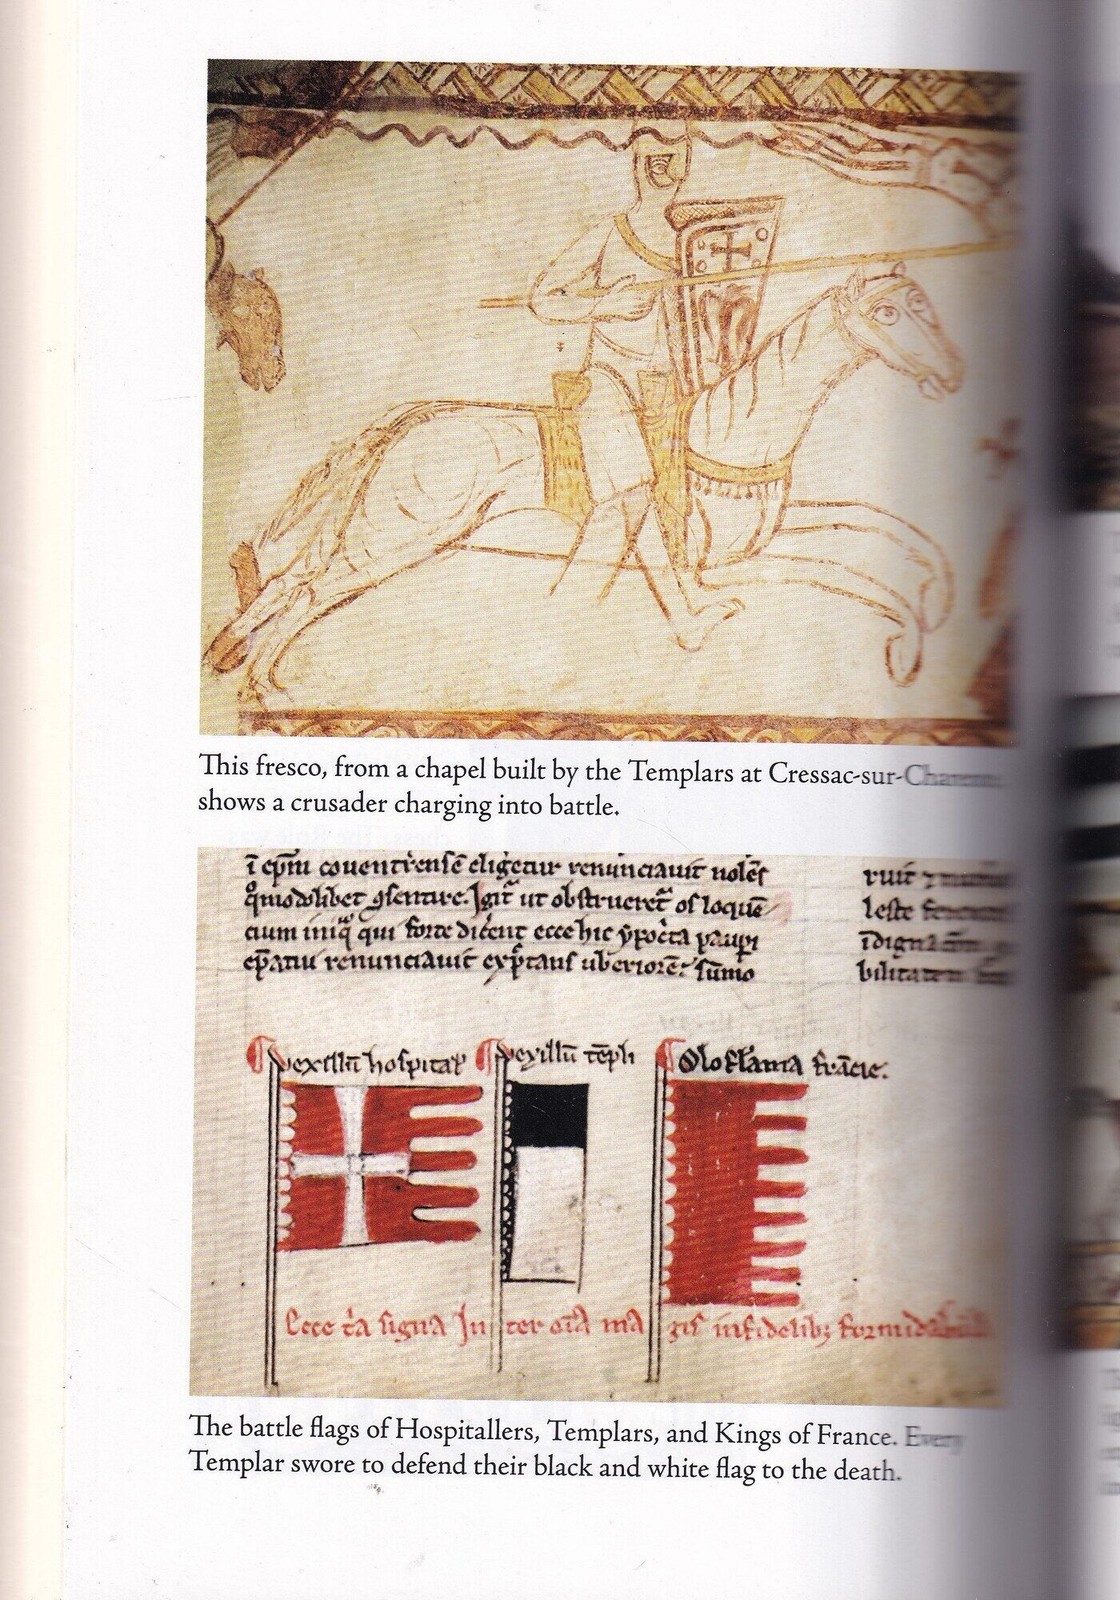 This fresco, from a chapel built by the Templars at Cressac-sur-Charente
shows a crusader charging into battle.
ī epm̄ couentrensē eligetur renunciauit nolēs
ut obstrueret os loquē
cium iniq̄ qui forte dicēnt ecce hic ypoc̄ta paup̄i
ep̄atu renunciauit exp̄tans uberiorē. sūmo
ruit
leste
bilitatem
vexillū hospital vexillū tēpli Oloflama frācie.
Ecce t̄a signa Inter oīa magis infidelibꝫ
The battle flags of Hospitallers, Templars, and Kings of France. Every
Templar swore to defend their black and white flag to the death.